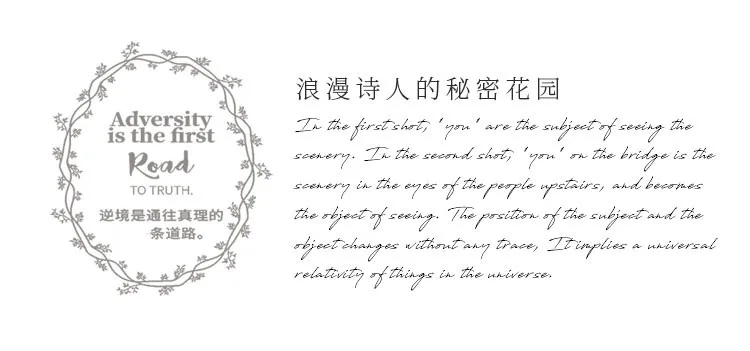 Adversity
is the first
Road
TO TRUTH.
逆境是通往真理的
条道路。
浪漫诗人的秘密花园
In the first shot, "you" are the subject of seeing the
scenery. In the second shot, "you" on the bridge is the
scenery in the eyes of the people upstairs, and becomes
the object of seeing. The position of the subject and the
object changes without any trace, It implies a universal
relativity of things in the universe.